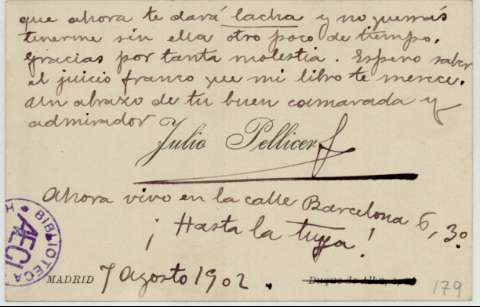 que ahora te dará lacha y no quemás
tenerme sin ella otro poco de tiempo.
Gracias por tanta molestia. Espero saber
el juicio franco que mi libro te merece.
Un abrazo de tu buen camarada y
admirador
Julio Pellicer
Ahora vivo en la calle Barcelona 6, 3º
¡Hasta la tuya!
BIBLIOTECA
AECI
MADRID 7 Agosto 1902.
Duque de Alba,
179